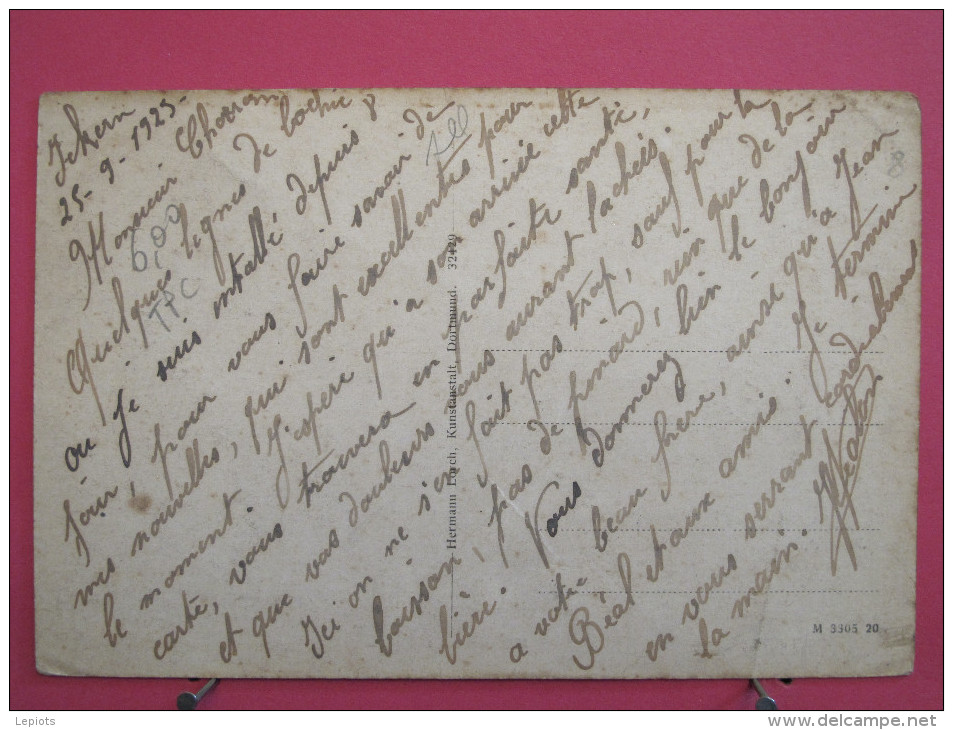 Ickern
25-9-1925-
Monsieur
Quelques lignes de Bochie
ou je suis installé, depuis 8
jours, pour vous faire savoir de
mes nouvelles, qui sont excellentes pour
le moment. J'espère qu'a son arrivé cette
carte, vous trouvera en parfaite santé,
et que vos douleurs vous auront lachers.
Ici on ne s'en fait pas trop, sauf pour la
boisson, pas de pinard, rien que de la
bière. Vous donnerez bien le bonjour
a votre beau frère, ainsi qu'a Jean
Béal et aux amis. Je termine
en vous serrant cordialement
la main.
600
TPC
8
Hermann Lorch, Kunstanstalt, Dortmund. 32429
M 3305 20
Lepiots
www.delcampe.net